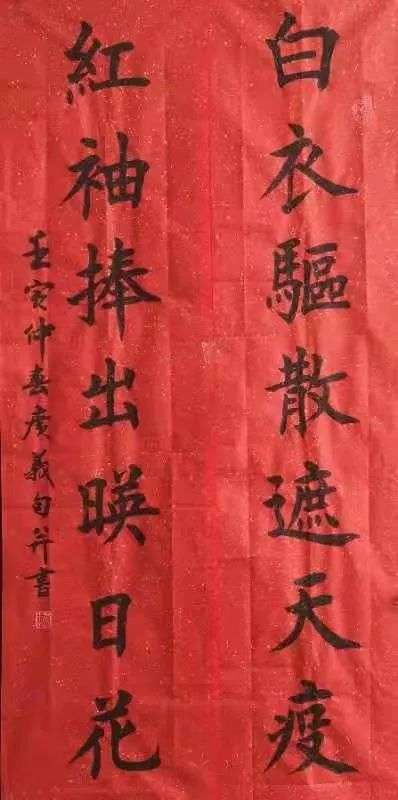 白衣驅散遮天疫
紅袖捧出暎日花
壬寅仲春广義句并書